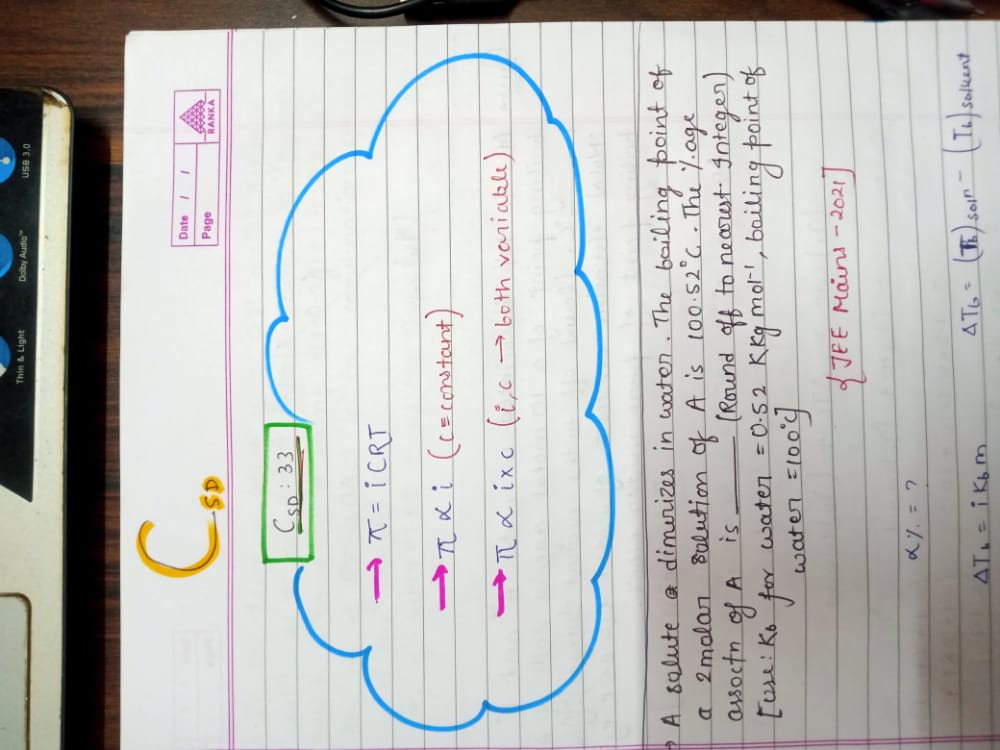 Thin & Light
Dolby Audio™
USB 3.0
Date / /
Page
RANKA
CSD
CSD : 33
→ π = i CRT
→ π α i (c = constant)
→ π α i x c (i, c → both variable)
→ A solute a dimerizes in water. The boiling point of
a 2molar solution of A is 100.52°C. The %age
assoctn of A is ____ (Round off to nearest Integer)
[use: Kb for water = 0.52 K Kg mol⁻¹, boiling point of
water = 100°C]
{JEE Mains - 2021]
α % = ?
ΔTb = i Kb m
ΔTb = (Tb) soln - (Tb) solvent